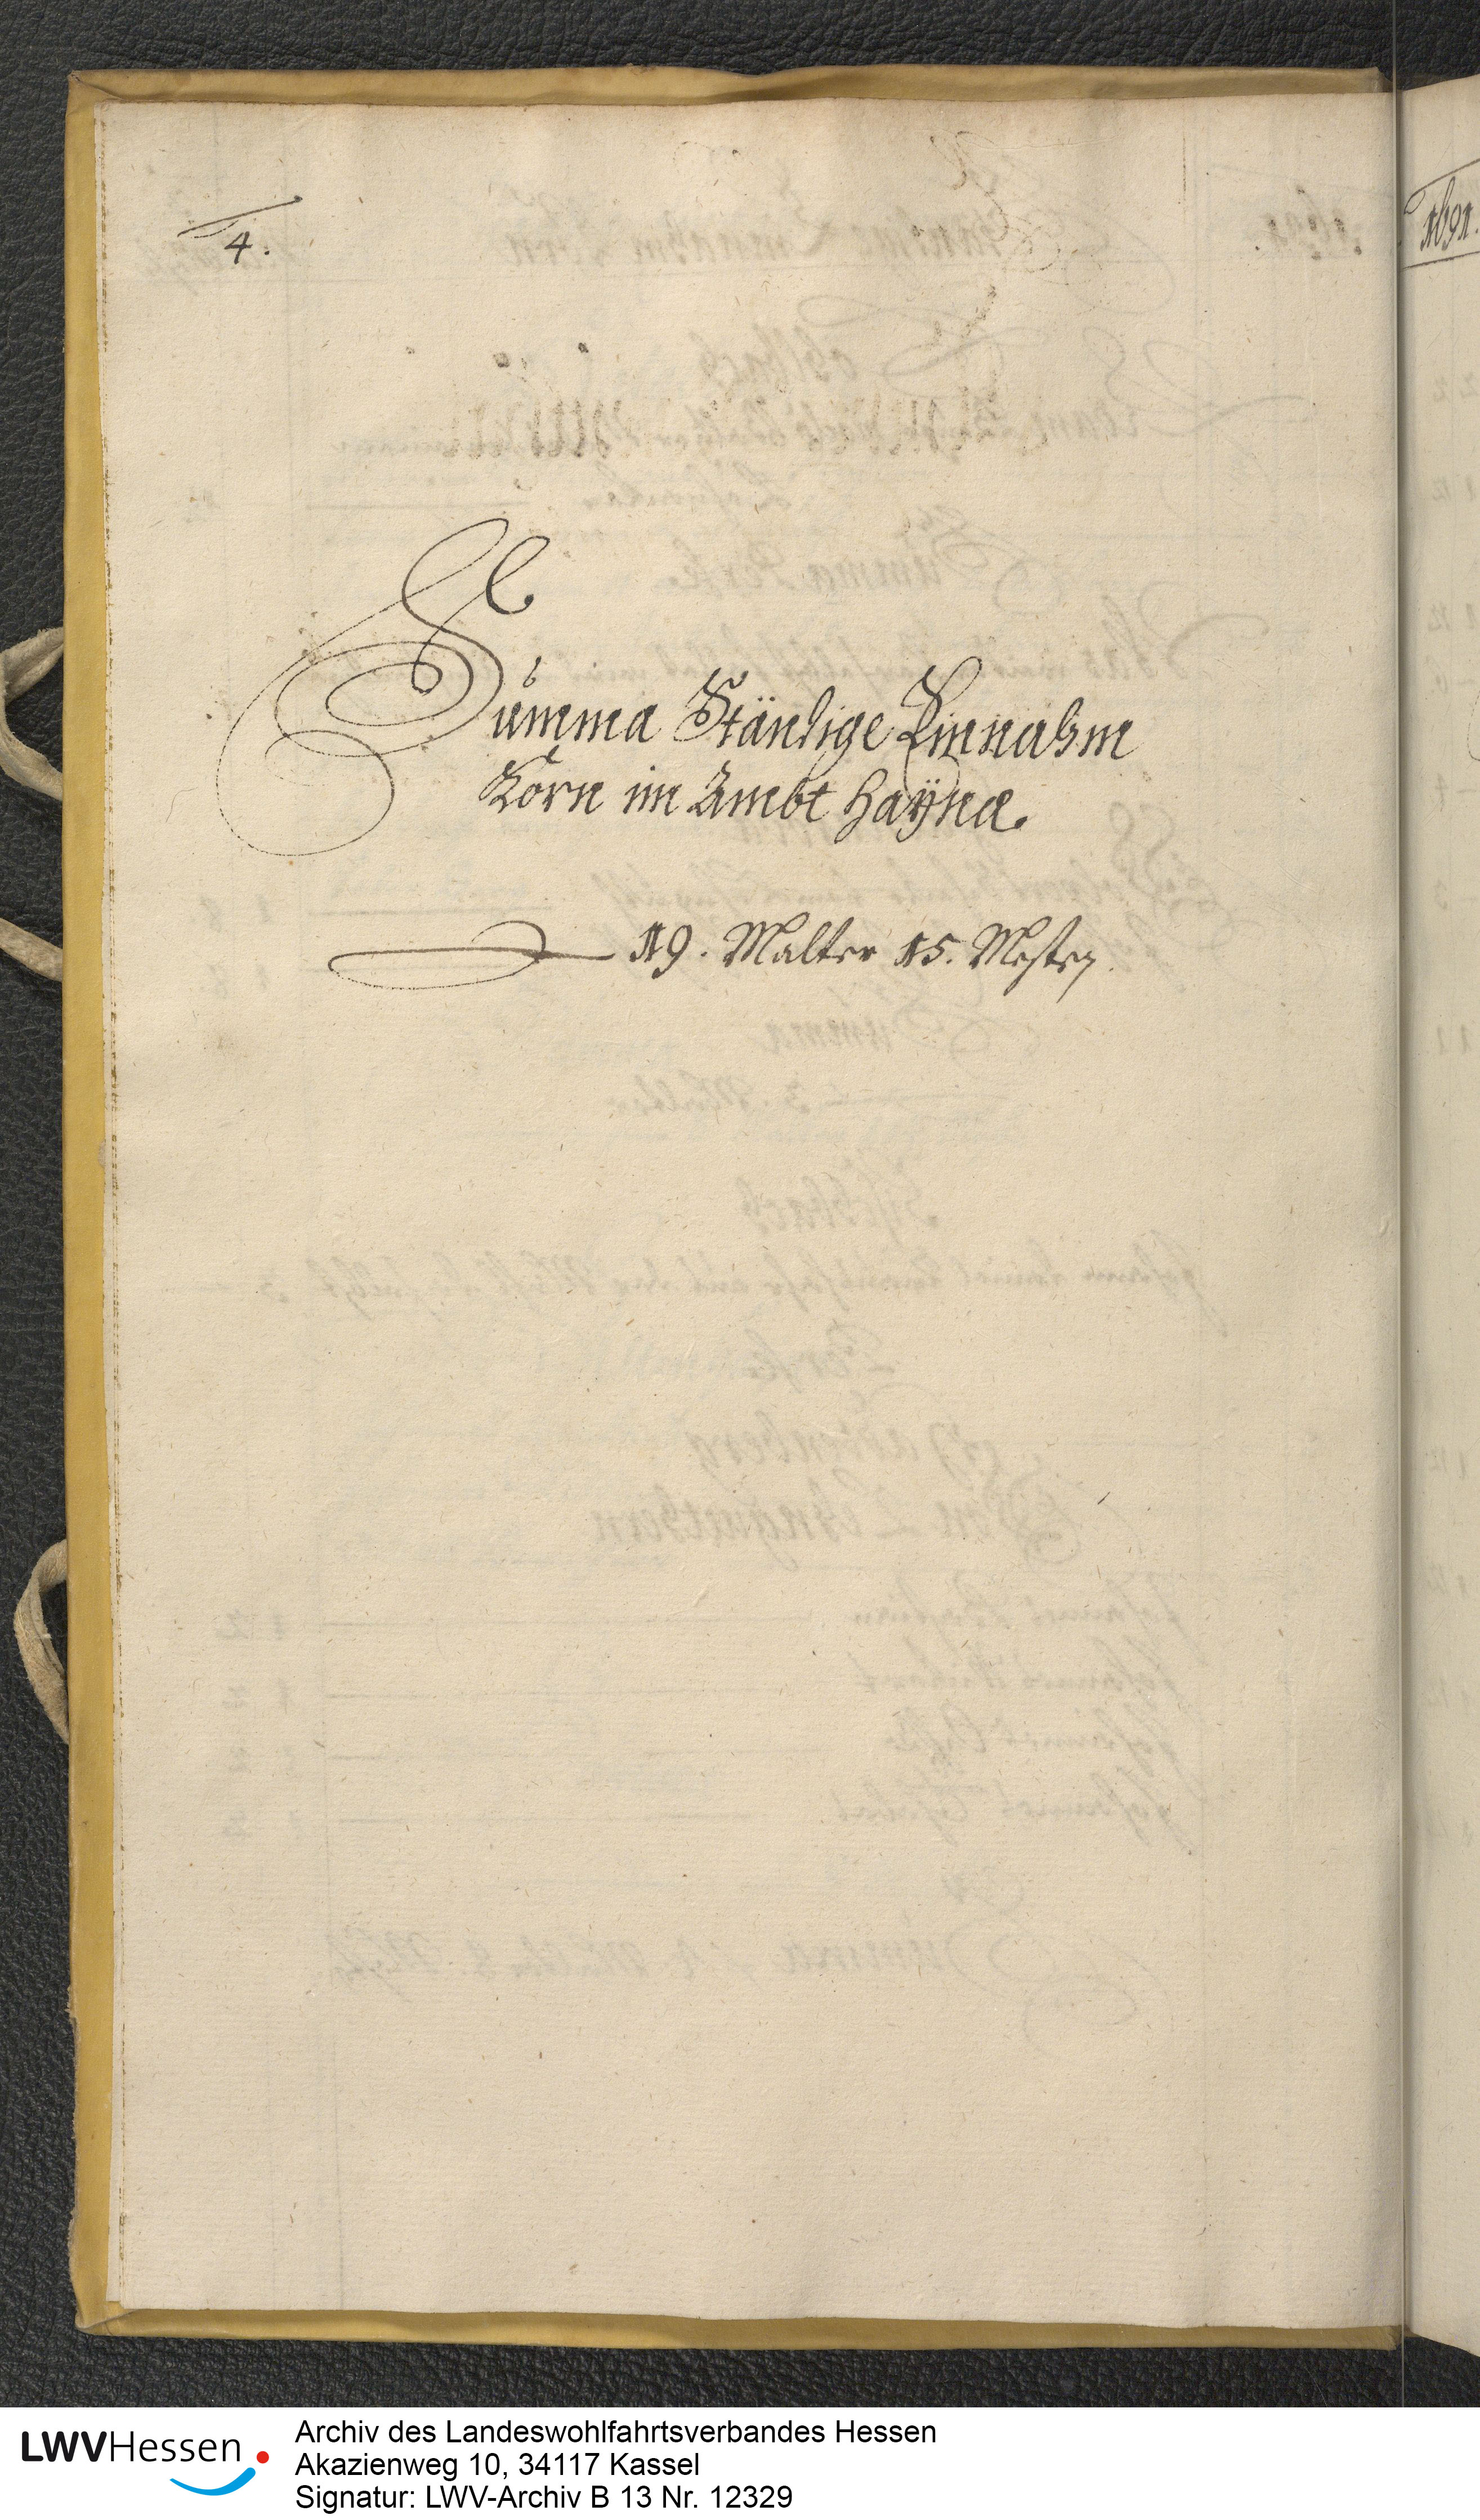 4.
1691.
Summa Ständige Einnahm
Korn im Ambt Haÿna.
19. Malter 15. Mesten.
LWVHessen
Archiv des Landeswohlfahrtsverbandes Hessen
Akazienweg 10, 34117 Kassel
Signatur: LWV-Archiv B 13 Nr. 12329